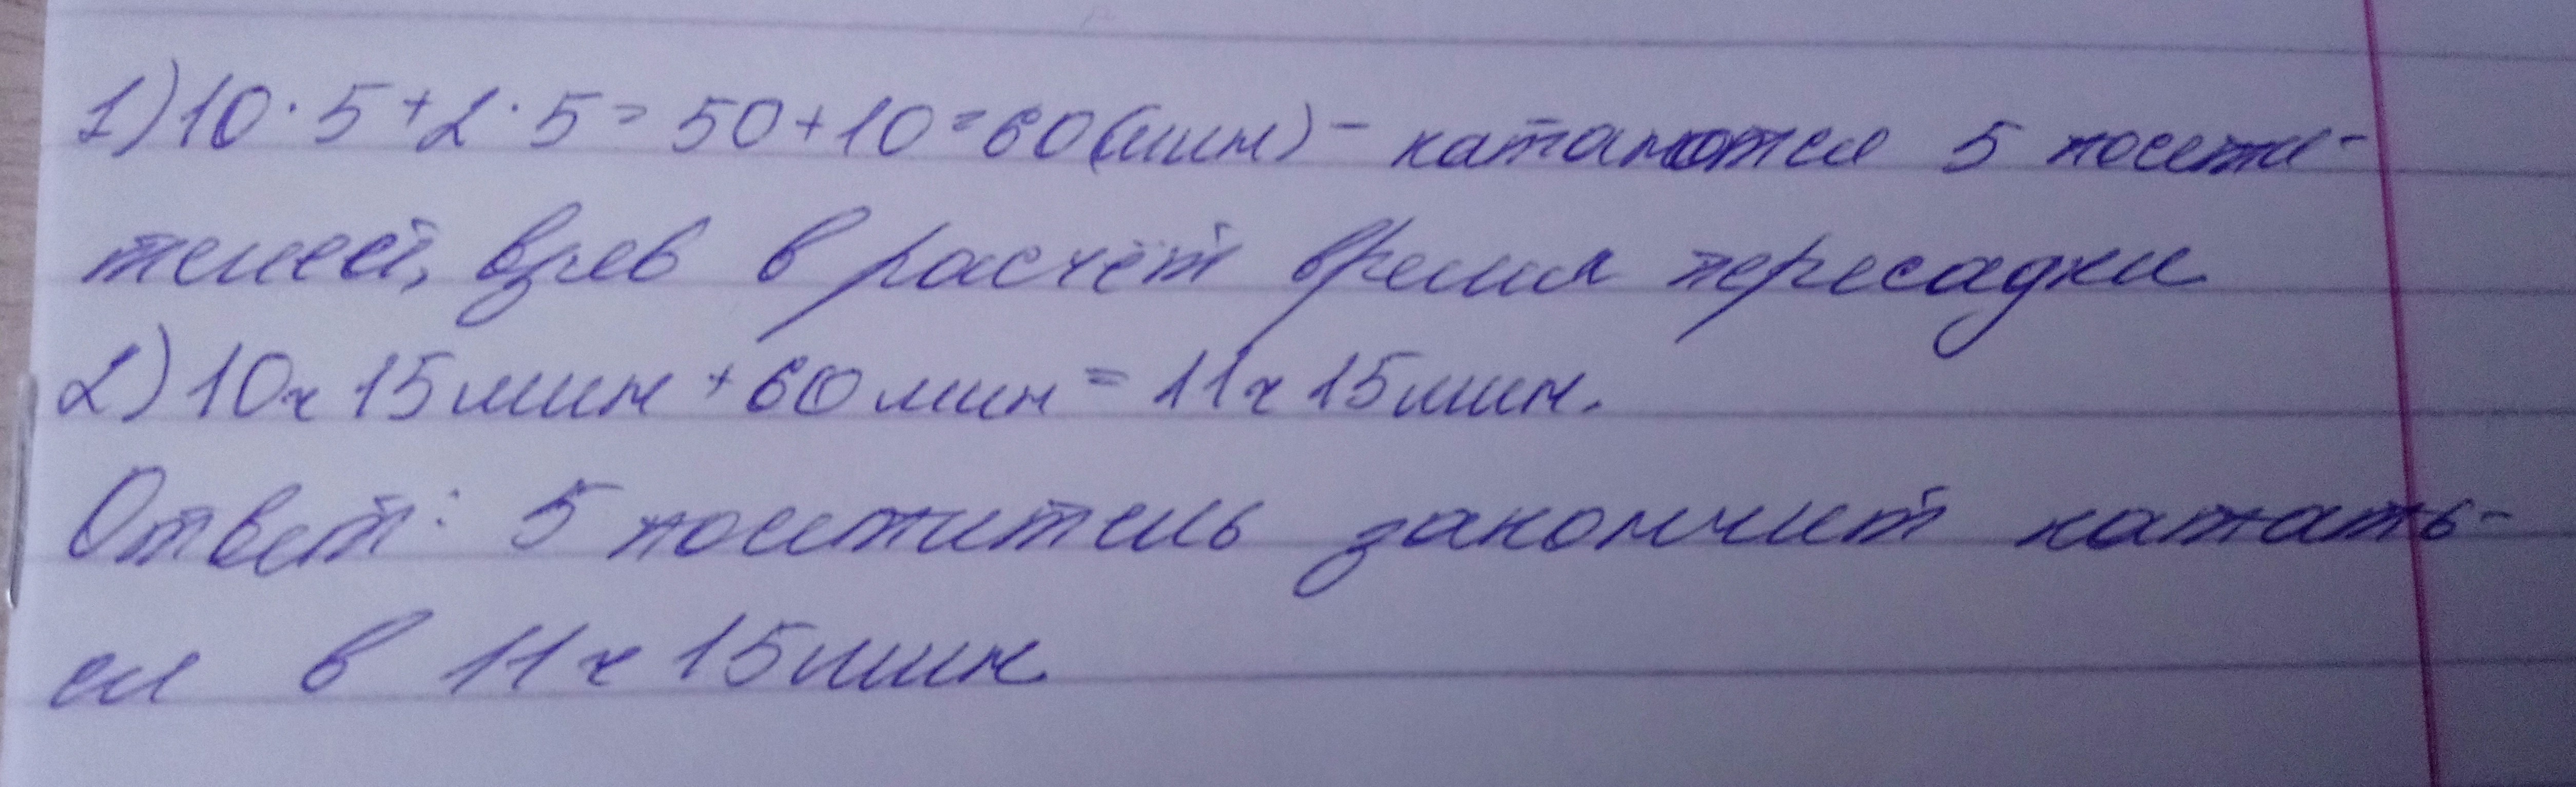 1) 10 · 5 + 2 · 5 = 50 + 10 = 60 (мин) - катаются 5 посети-
телей, взяв в расчёт время пересадки
2) 10ч 15мин + 60 мин = 11ч 15мин.
Ответ: 5 посетитель закончит катать-
ся в 11ч 15мин